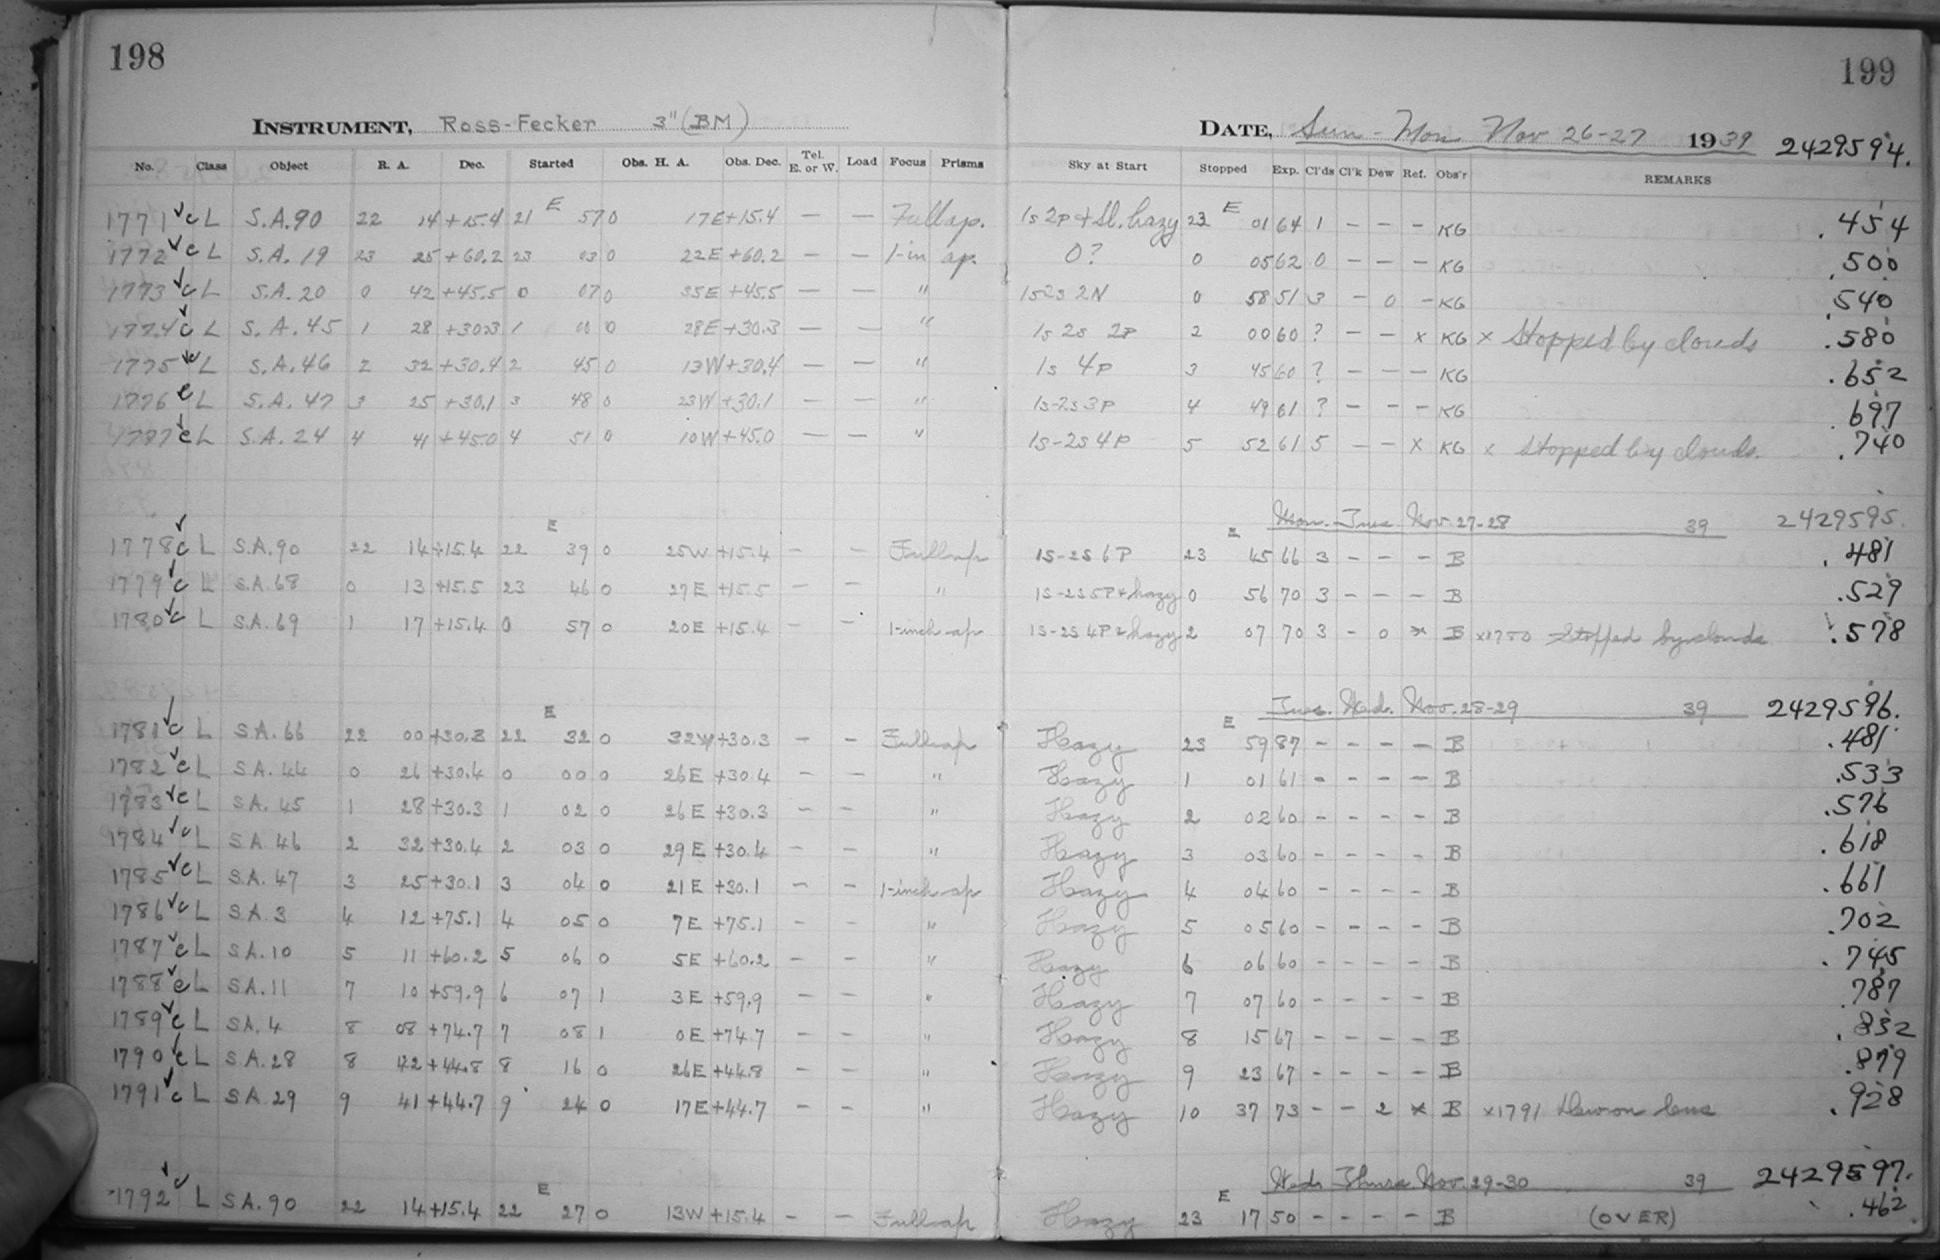 198
199
INSTRUMENT, Ross-Fecker 3" (BM)
DATE, Sun - Mon Nov 26-27 1939 2429594.
No. Class Object R. A. Dec. Started Obs. H. A. Obs. Dec. Tel. E. or W. Load Focus Prisms Sky at Start Stopped Exp. Cl'ds Cl'k Dew Ref. Obs'r REMARKS
1771 ✓ c L S.A.90 22 14 +15.4 21 E 57 0 17E +15.4 — — Full ap. 1s 2P + Sl. hazy 23 E 01 64 1 — — — KG .454
1772 ✓ c L S.A. 19 23 25 +60.2 23 03 0 22E +60.2 — — 1-in ap. 0? 0 05 62 0 — — — KG .500
1773 ✓ c L S.A. 20 0 42 +45.5 0 07 0 35E +45.5 — — " 1s2s 2N 0 58 51 3 — 0 — KG .540
1774 ✓ c L S.A. 45 1 28 +30.3 1 00 0 28E +30.3 — — " 1s 2s 2P 2 00 60 ? — — x KG x Stopped by clouds .580
1775 ✓ c L S.A. 46 2 32 +30.4 2 45 0 13W +30.4 — — " 1s 4P 3 45 60 ? — — — KG .652
1776 c L S.A. 47 3 25 +30.1 3 48 0 23W +30.1 — — " 1s-2s 3P 4 49 61 ? — — — KG .697
1777 c L S.A. 24 4 41 +45.0 4 51 0 10W +45.0 — — " 1s-2s 4P 5 52 61 5 — — x KG x Stopped by clouds. .740
Mon. Tues Nov. 27-28 39 2429595.
1778 ✓ c L S.A.90 22 14 +15.4 22 E 39 0 25W +15.4 — — Full ap 1S-2S 6P 23 E 45 66 3 — — — B .481
1779 ✓ c L S.A.68 0 13 +15.5 23 46 0 27E +15.5 — — " 1S-2S 5P + hazy 0 56 70 3 — — — B .529
1780 ✓ c L S.A.69 1 17 +15.4 0 57 0 20E +15.4 — — 1-inch ap 1S-2S 4P + hazy 2 07 70 3 — 0 x B x1780 Stopped by clouds .578
Tues. Wed. Nov. 28-29 39 2429596.
1781 ✓ c L S.A. 66 22 00 +30.3 22 E 32 0 32W +30.3 — — Full ap Hazy 23 E 59 87 — — — — B .481
1782 ✓ c L S.A. 44 0 26 +30.4 0 00 0 26E +30.4 — — " Hazy 1 01 61 — — — — B .533
1783 ✓ c L S.A. 45 1 28 +30.3 1 02 0 26E +30.3 — — " Hazy 2 02 60 — — — — B .576
1784 ✓ c L S.A. 46 2 32 +30.4 2 03 0 29E +30.4 — — " Hazy 3 03 60 — — — — B .618
1785 ✓ c L S.A. 47 3 25 +30.1 3 04 0 21E +30.1 — — 1-inch ap Hazy 4 04 60 — — — — B .661
1786 ✓ c L S.A. 3 4 12 +75.1 4 05 0 7E +75.1 — — " Hazy 5 05 60 — — — — B .702
1787 ✓ c L S.A. 10 5 11 +60.2 5 06 0 5E +60.2 — — " Hazy 6 06 60 — — — — B .745
1788 ✓ c L S.A. 11 7 10 +59.9 6 07 1 3E +59.9 — — " Hazy 7 07 60 — — — — B .787
1789 ✓ c L S.A. 4 8 08 +74.7 7 08 1 0E +74.7 — — " Hazy 8 15 67 — — — — B .832
1790 ✓ c L S.A. 28 8 42 +44.8 8 16 0 26E +44.8 — — " Hazy 9 23 67 — — — — B .879
1791 ✓ c L S.A. 29 9 41 +44.7 9 24 0 17E +44.7 — — " Hazy 10 37 73 — — 2 x B x1791 Dew on lens .928
Wed. Thurs Nov. 29-30 39 2429597.
1792 ✓ c L S.A. 90 22 14 +15.4 22 E 27 0 13W +15.4 — — Full ap Hazy 23 E 17 50 — — — — B (OVER) .462